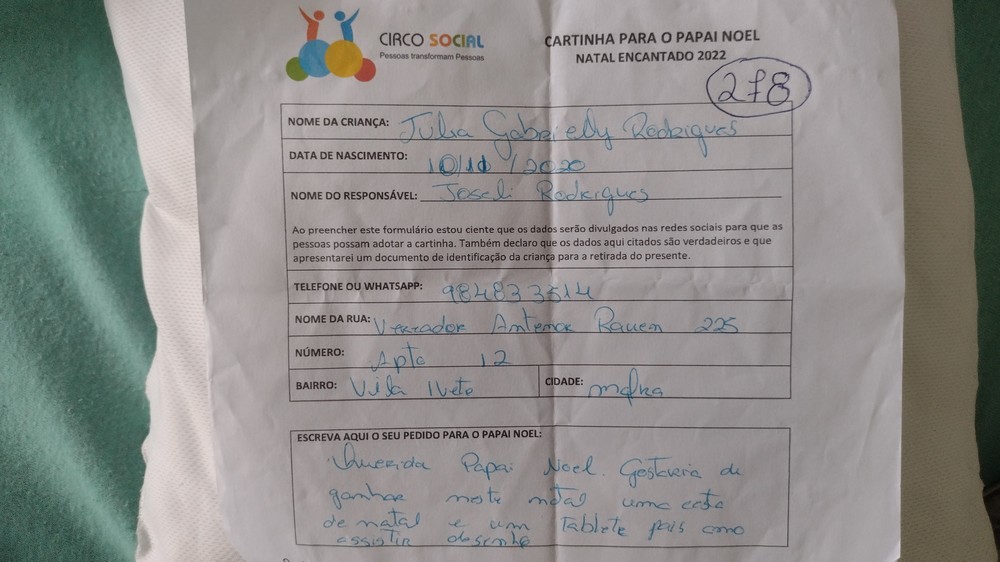 CIRCO SOCIAL
Pessoas transformam Pessoas
CARTINHA PARA O PAPAI NOEL
NATAL ENCANTADO 2022
278
NOME DA CRIANÇA: Julia Gabrielly Rodrigues
DATA DE NASCIMENTO: 10/11/2020
NOME DO RESPONSÁVEL: Joseli Rodrigues
Ao preencher este formulário estou ciente que os dados serão divulgados nas redes sociais para que as
pessoas possam adotar a cartinha. Também declaro que os dados aqui citados são verdadeiros e que
apresentarei um documento de identificação da criança para a retirada do presente.
TELEFONE OU WHATSAPP: 984833514
NOME DA RUA: Vereador Antenor Rauen 225
NÚMERO: Apto 12
BAIRRO: Vila Ivete CIDADE: mafra
ESCREVA AQUI O SEU PEDIDO PARA O PAPAI NOEL:
Querida Papai Noel. Gostaria de
ganhar neste natal uma cesta
de natal e um Tablete pois amo
assistir desenho